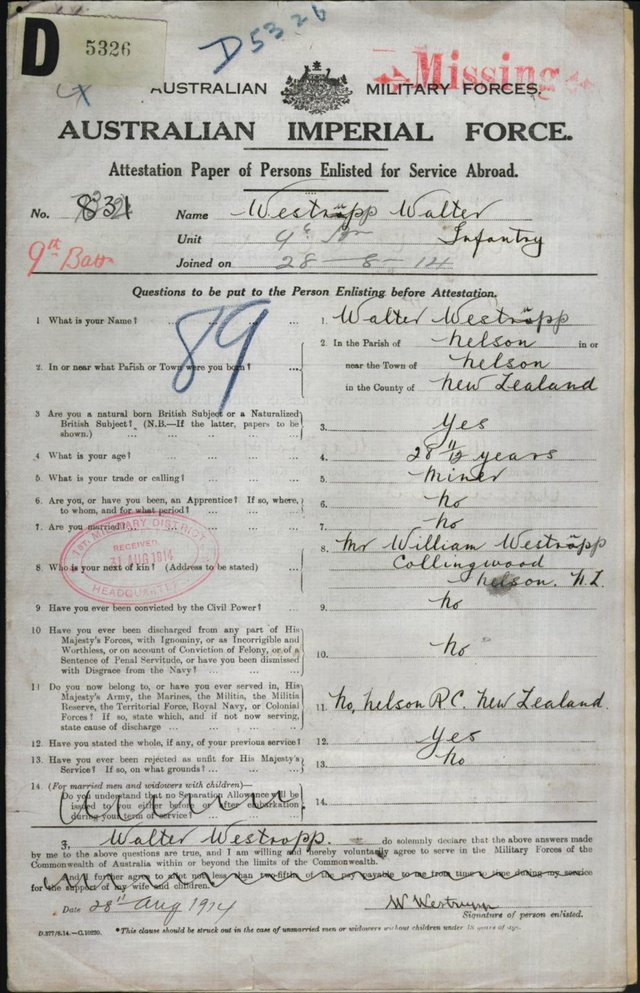 D 5326
D5326
Missing
AUSTRALIAN MILITARY FORCES.
AUSTRALIAN IMPERIAL FORCE.
Attestation Paper of Persons Enlisted for Service Abroad.
No. 831 Name Westropp Walter
9th Battn Unit 9th Bn Infantry
Joined on 28-8-14
Questions to be put to the Person Enlisting before Attestation.
89
1 What is your Name? ... ... ... ... 1. Walter Westropp
2. In or near what Parish or Town were you born? ... 2. In the Parish of Nelson in or
near the Town of Nelson
in the County of New Zealand
3 Are you a natural born British Subject or a Naturalized
British Subject? (N.B.—If the latter, papers to be
shown.) ... ... ... ... 3. Yes
4 What is your age? ... ... ... ... 4. 28 11/12 years
5. What is your trade or calling? ... ... ... 5. Miner
6. Are you, or have you been, an Apprentice? If so, where,
to whom, and for what period? ... ... 6. No
7. Are you married? ... ... ... ... 7. No
1ST. MILITARY DISTRICT
RECEIVED
31 AUG 1914
HEADQUARTERS
8. Who is your next of kin? (Address to be stated) ... 8. Mr William Westropp
Collingwood
Nelson. N.Z.
9 Have you ever been convicted by the Civil Power? ... 9. No
10 Have you ever been discharged from any part of His
Majesty's Forces, with Ignominy, or as Incorrigible and
Worthless, or on account of Conviction of Felony, or of a
Sentence of Penal Servitude, or have you been dismissed
with Disgrace from the Navy? ... ... 10. No
11 Do you now belong to, or have you ever served in, His
Majesty's Army, the Marines, the Militia, the Militia
Reserve, the Territorial Force, Royal Navy, or Colonial
Forces? If so, state which, and if not now serving,
state cause of discharge ... ... ... 11. No, Nelson R.C. New Zealand.
12. Have you stated the whole, if any, of your previous service? 12. Yes
13. Have you ever been rejected as unfit for His Majesty's
Service? If so, on what grounds? ... ... 13. No
14. (For married men and widowers with children)—
Do you understand that no Separation Allowance will be
issued to you either before or after embarkation
during your term of service? ... ... 14.
I, Walter Westropp. do solemnly declare that the above answers made
by me to the above questions are true, and I am willing and hereby voluntarily agree to serve in the Military Forces of the
Commonwealth of Australia within or beyond the limits of the Commonwealth.
*And I further agree to allot not less than two-fifths of the pay payable to me from time to time during my service
for the support of my wife and children.
Date 28th Aug 1914 W Westropp
Signature of person enlisted.
D.277/8.14.—C.10220. *This clause should be struck out in the case of unmarried men or widowers without children under 18 years of age.